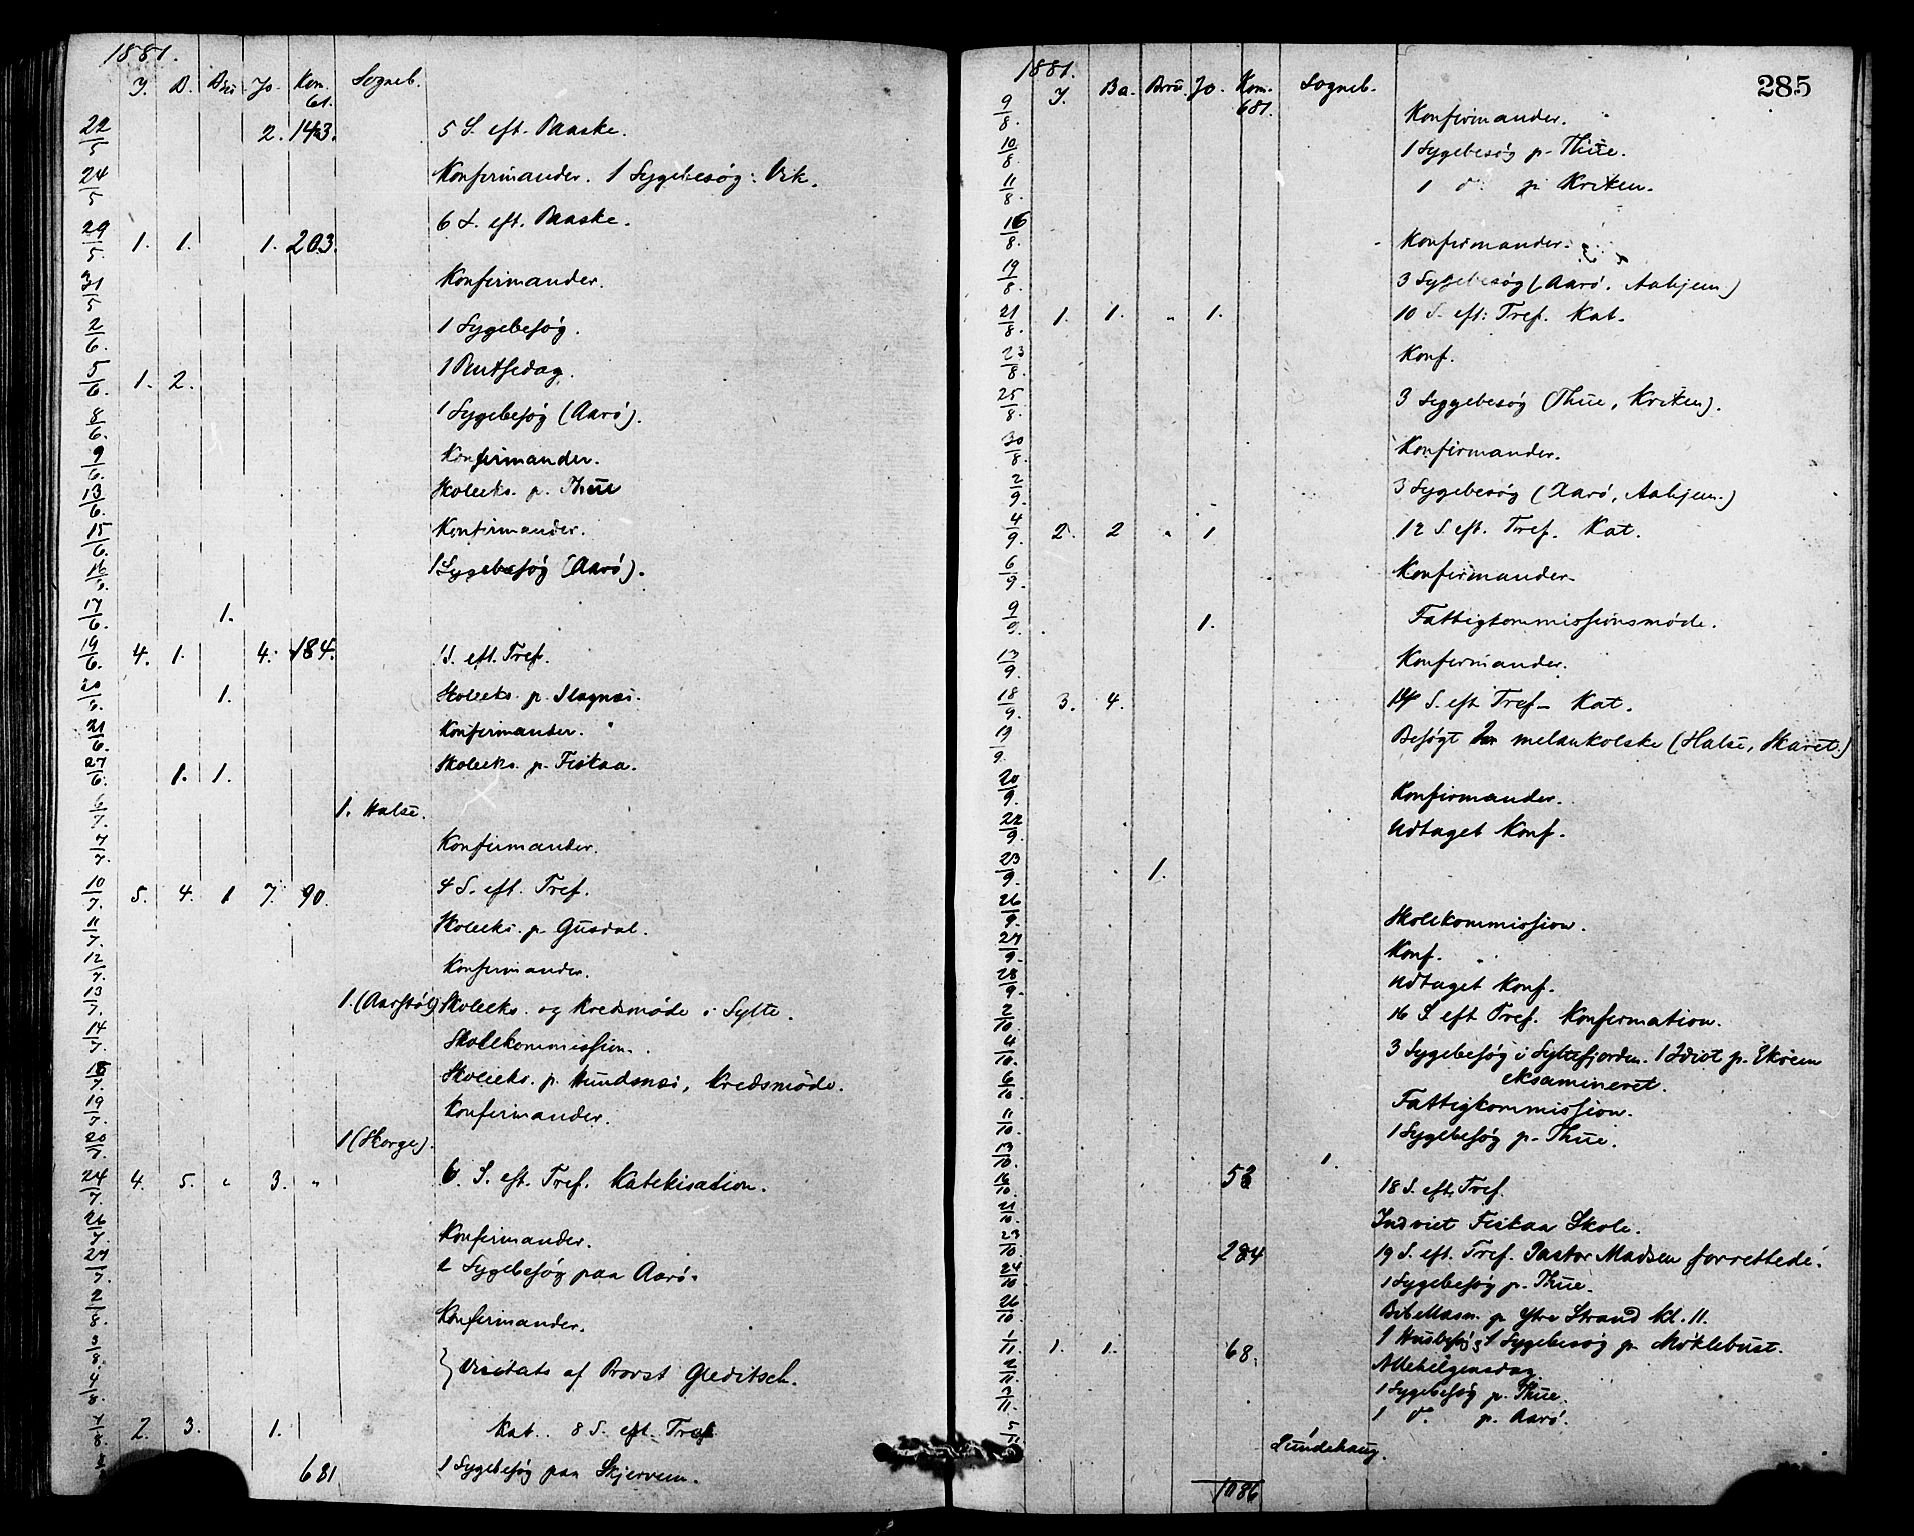 1881.
I. D. Bru. Jo. Kom. Sogneb.
61.
22/5 2. 143. 5 S. eft. Paaske.
24/5 Konfirmander. 1 Sygebesøg: Vik.
29/5 1. 1. 1. 203. 6 S. eft. Paaske.
31/5 Konfirmander.
2/6 1 Sygebesøg.
5/6 1. 2. 1 Pintsedag.
8/6 1 Sygebesøg (Aarö).
9/6 Konfirmander.
13/6 Skoleeks. p. Thue
15/6 Konfirmander.
16/6 1 Sygebesøg (Aarö).
17/6 1.
19/6 4. 1. 4. 184. 1 S. eft. Tref.
20/6 1. Skoleeks. p. Slagnæs.
21/6 Konfirmander.
27/6 1. 1. Skoleeks. p. Fiskaa.
6/7 1. Halse.
7/7 Konfirmander.
10/7 5. 4. 1 7. 90. 4 S. eft. Tref.
11/7 Skoleeks. p. Gusdal.
12/7 Konfirmander.
13/7 1. (Aarstöl) Skoleeks. og Kredsmøde i Sylte.
14/7 Skolekommission.
18/7 Skoleeks. p. Hundsnæs, Kredsmøde.
19/7 Konfirmander.
20/7 1 (Skorge).
24/7 4. 5. " 3. " 6. S. eft. Tref. Katekisation.
26/7 Konfirmander.
27/7 2 Sygebesøg paa Aarö.
2/8 Konfirmander.
3/8
4/8 } Visitats af Provst Gleditsch.
7/8 2. 3. 1. Kat. 8 S. eft. Tref
681 1 Sygebesøg paa Skjervem.
285
1881.
I. Ba. Bru. Jo. Kom. Sogneb.
681.
9/8 Konfirmander.
10/8 1 Sygebesøg p. Thue.
11/8 1 do p. Kriken.
16/8 Konfirmander.
19/8 3 Sygebesøg (Aarö, Aahjem)
21/8 1. 1. " 1. 10 S. eft. Tref. Kat.
23/8 Konf.
25/8 3 Sygebesøg (Thue, Kriken).
30/8 Konfirmander.
2/9 3 Sygebesøg (Aarö, Aahjem.)
4/9 2. 2 " 1 12 S. eft. Tref. Kat.
6/9 Konfirmander.
9/9 1. Fattigkommissionsmøde.
13/9 Konfirmander.
18/9 3. 4. 14 S. eft Tref- Kat.
19/9 Besøgt melankolske (Halse, Skaret.)
20/9 Konfirmander.
22/9 Udtaget Konf.
23/9 1.
26/9 Skolekommission.
27/9 Konf.
28/9 Udtaget Konf.
2/10 16 S. eft Tref. Konfirmation.
4/10 3 Sygebesøg i Syltefjorden. 1 Idiot p. Ekrem
eksamineret.
6/10 Fattigkommission.
11/10 1 Sygebesøg p. Thue.
13/10 1.
16/10 53 18 S. eft. Tref.
21/10 Indviet Fiskaa Skole.
23/10 284 19 S. eft. Tref. Pastor Madsen forrettede.
24/10 1 Sygebesøg p. Thue.
26/10 Bibellæsn. p. Ytre Strand kl. 11.
1/11 1. 1. 68. 1 Husbesøg, 1 Sygebesøg p. Möklebust.
2/11 Allehelgensdag
3/11 1 Sygebesøg p. Thue.
1 do p. Aarö.
5/11 1
Sundehaug.
1086